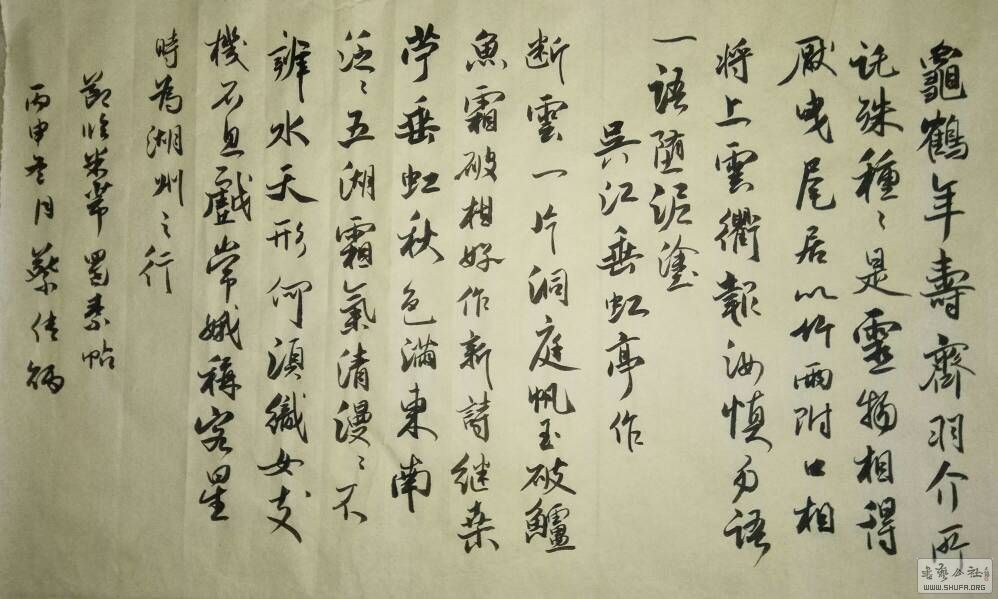 龜鶴年壽齊羽介所
託殊種〻是靈物相得
厭曳尾居以竹兩附口相
將上雲衢報汝慎勿語
一語墮泥塗
吳江垂虹亭作
断雲一片洞庭帆玉破鱸
魚霜破柑好作新詩继桑
苧垂虹秋色滿東南
泛〻五湖霜氣清漫〻不
辨水天形何須織女支
機石且戲常娥稱客星
時為湖州之行
節临米芾蜀素帖
丙申冬月蔡传炳
WWW.SHUFA.ORG